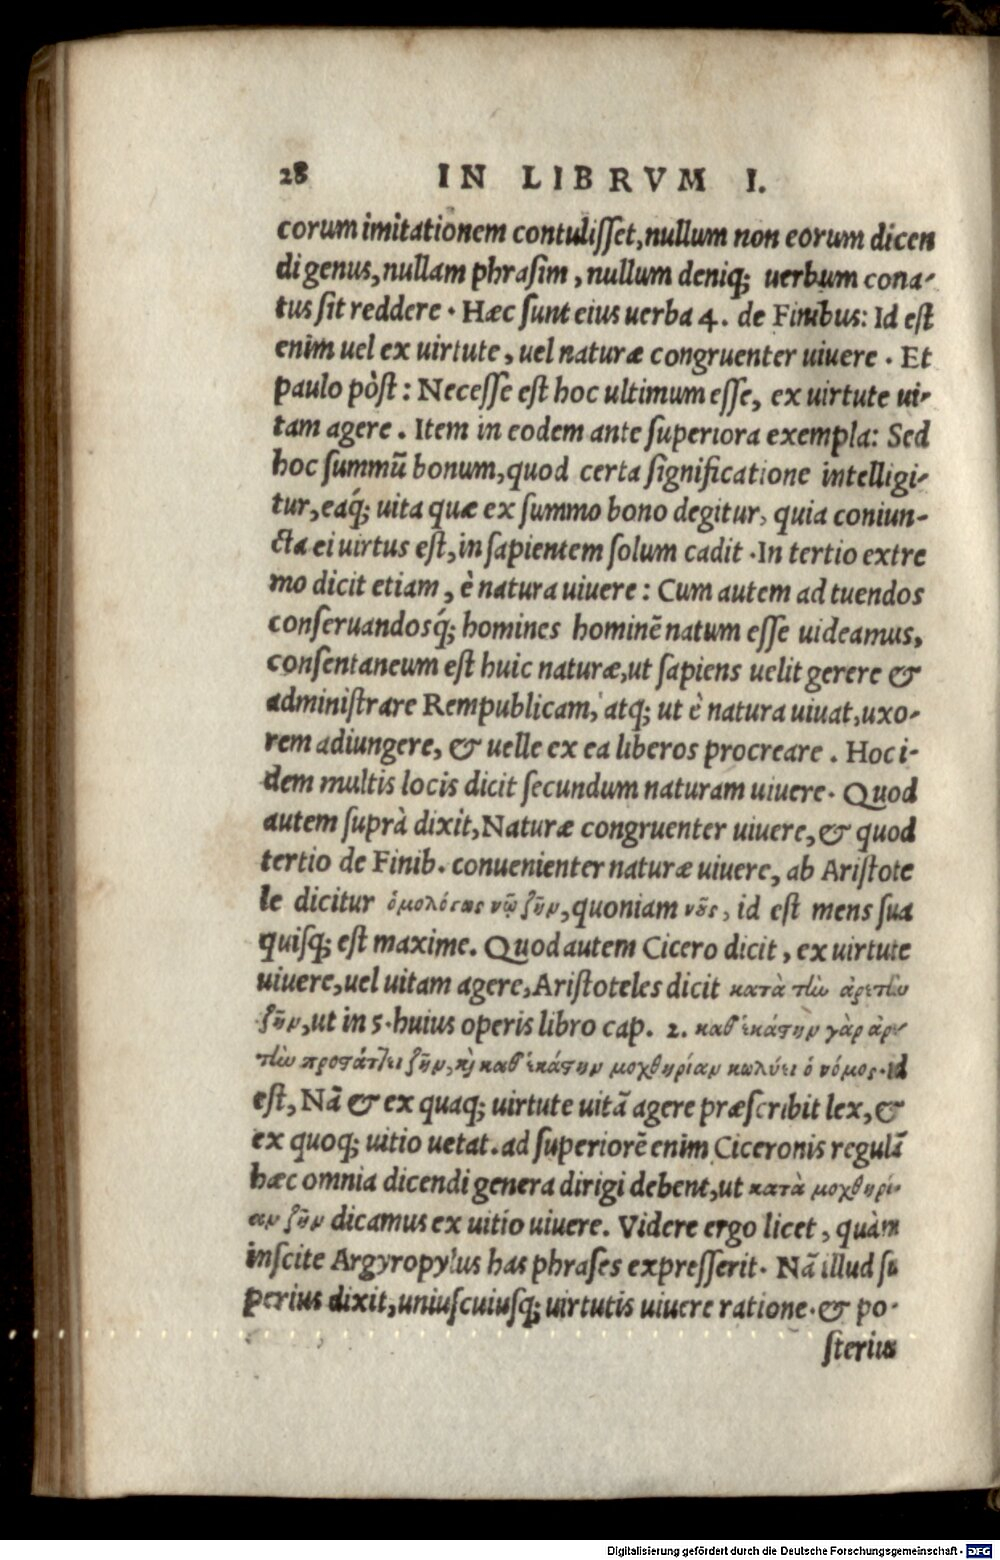 28 IN LIBRVM I.
corum imitationem contulisset, nullum non eorum dicen
di genus, nullam phrasim, nullum deniq; uerbum cona-
tus sit reddere. Hæc sunt eius uerba 4. de Finibus: Id est
enim uel ex uirtute, uel naturæ congruenter uiuere. Et
paulo pòst: Necesse est hoc ultimum esse, ex uirtute ui-
tam agere. Item in eodem ante superiora exempla: Sed
hoc summũ bonum, quod certa significatione intelligi-
tur, eaq́; uita quæ ex summo bono degitur, quia coniun-
cta ei uirtus est, in sapientem solum cadit. In tertio extre
mo dicit etiam, è natura uiuere: Cum autem ad tuendos
conseruandosq́; homines hominẽ natum esse uideamus,
consentaneum est huic naturæ, ut sapiens uelit gerere &
administrare Rempublicam, atq; ut è natura uiuat, uxo-
rem adiungere, & uelle ex ea liberos procreare. Hoc i-
dem multis locis dicit secundum naturam uiuere. Quod
autem suprà dixit, Naturæ congruenter uiuere, & quod
tertio de Finib. conuenienter naturæ uiuere, ab Aristote
le dicitur νῷ ζῆν, quoniam νοῦς, id est mens sua
quisq; est maxime. Quod autem Cicero dicit, ex uirtute
uiuere, uel uitam agere, Aristoteles dicit κατὰ τὴν ἀρετὴν
ζῆν, ut in 5. huius operis libro cap. 2. καθ' ἑκάστην γὰρ ἀρε-
τὴν προστάττει ζῆν, καὶ καθ' ἑκάστην μοχθηρίαν κωλύει ὁ νόμος. id
est, Nã & ex quaq; uirtute uitã agere præscribit lex, &
ex quoq; uitio uetat. ad superiorẽ enim Ciceronis regulã
hæc omnia dicendi genera dirigi debent, ut κατὰ μοχθηρί-
αν ζῆν dicamus ex uitio uiuere. Videre ergo licet, quàm
inscite Argyropylus has phrases expresserit. Nã illud su
perius dixit, uniuscuiusq; uirtutis uiuere ratione. & po-
sterius
Digitalisierung gefördert durch die Deutsche Forschungsgemeinschaft - DFG